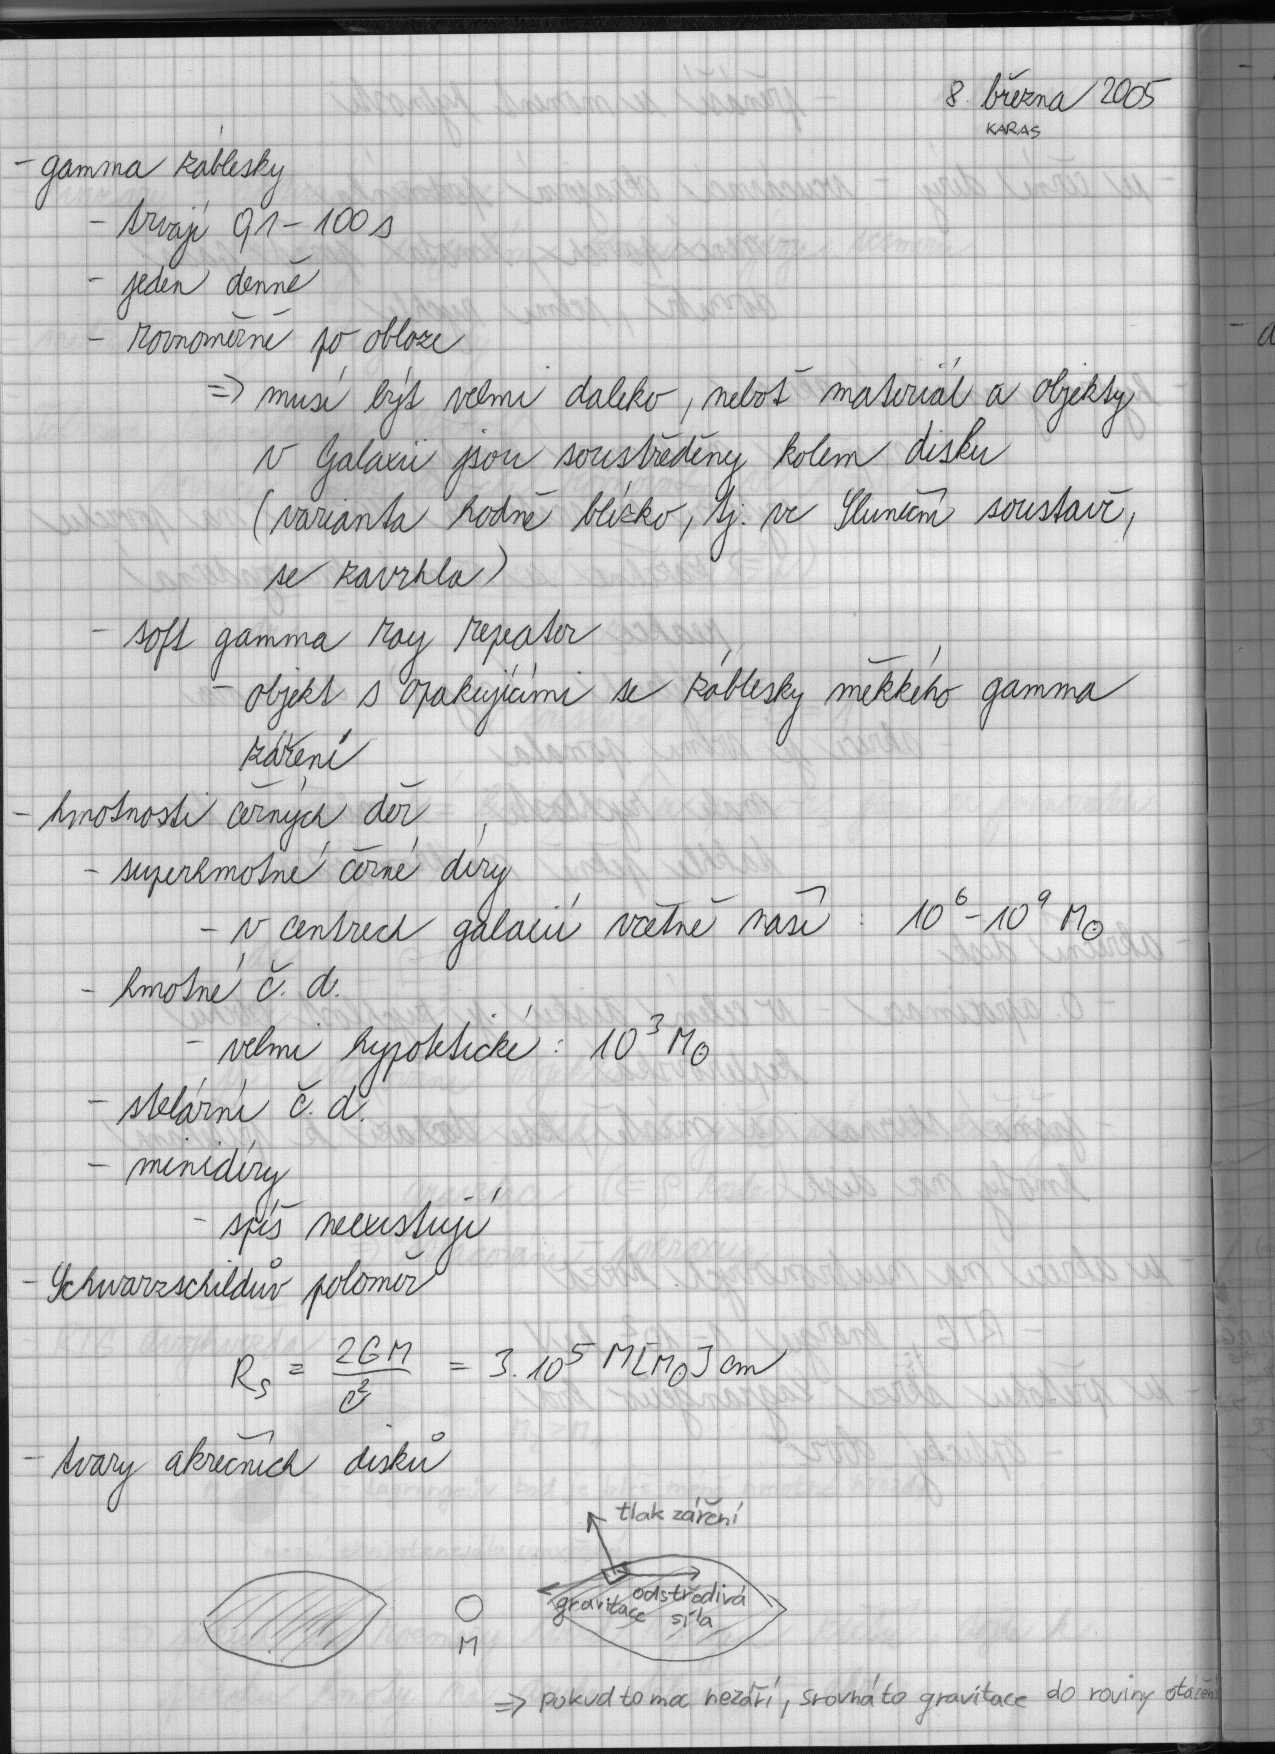 8. března 2005
KARAS
- gamma záblesky
- trvají 0,1 - 100 s
- jeden denně
- rovnoměrně po obloze
=> musí být velmi daleko, neboť materiál a objekty
v Galaxii jsou soustředěny kolem disku
(varianta hodně blízko, tj. ve Sluneční soustavě,
se zavrhla)
- soft gamma ray repeater
- objekt s opakujícími se záblesky měkkého gamma
záření
- hmotnosti černých děr
- superhmotné černé díry
- v centrech galaxií včetně naší : 10^6 - 10^9 M⊙
- hmotné č. d.
- velmi hypotetické : 10^3 M⊙
- stelární č. d.
- minidíry
- spíš neexistují
- Schwarzschildův poloměr
R_s = 2GM/c^2 = 3.10^5 M[M⊙] cm
- tvary akrečních disků
tlak záření
gravitace odstředivá
síla
M
=> pokud to moc nezáří, srovná to gravitace do roviny otáčení